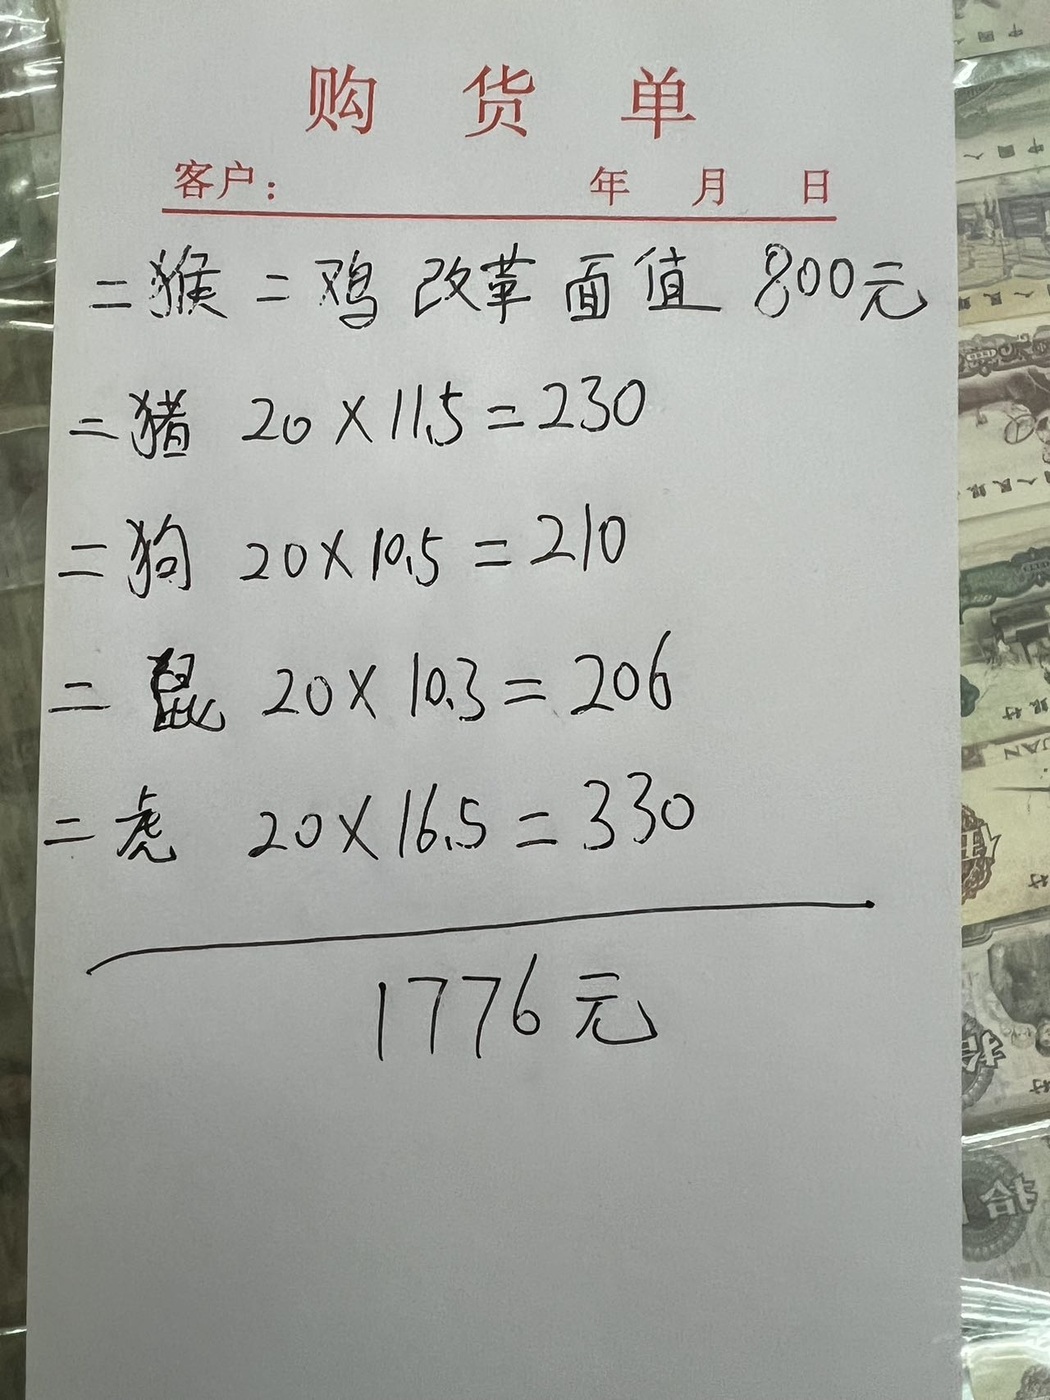 购货单
客户： 年 月 日
二猴二鸡 改革 面值 800元
二猪 20×11.5=230
二狗 20×10.5=210
二鼠 20×10.3=206
二虎 20×16.5=330
1776元